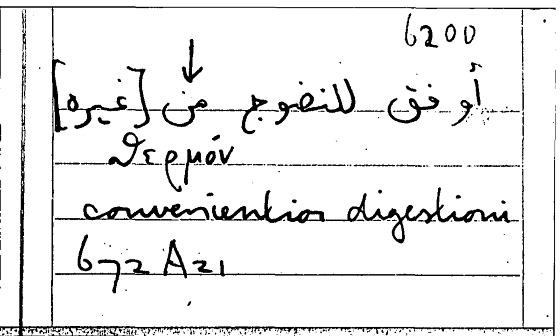 6200
↓
أوفق للنضوج من [غيره]
θερμόν
convenientior digestioni
672 A21